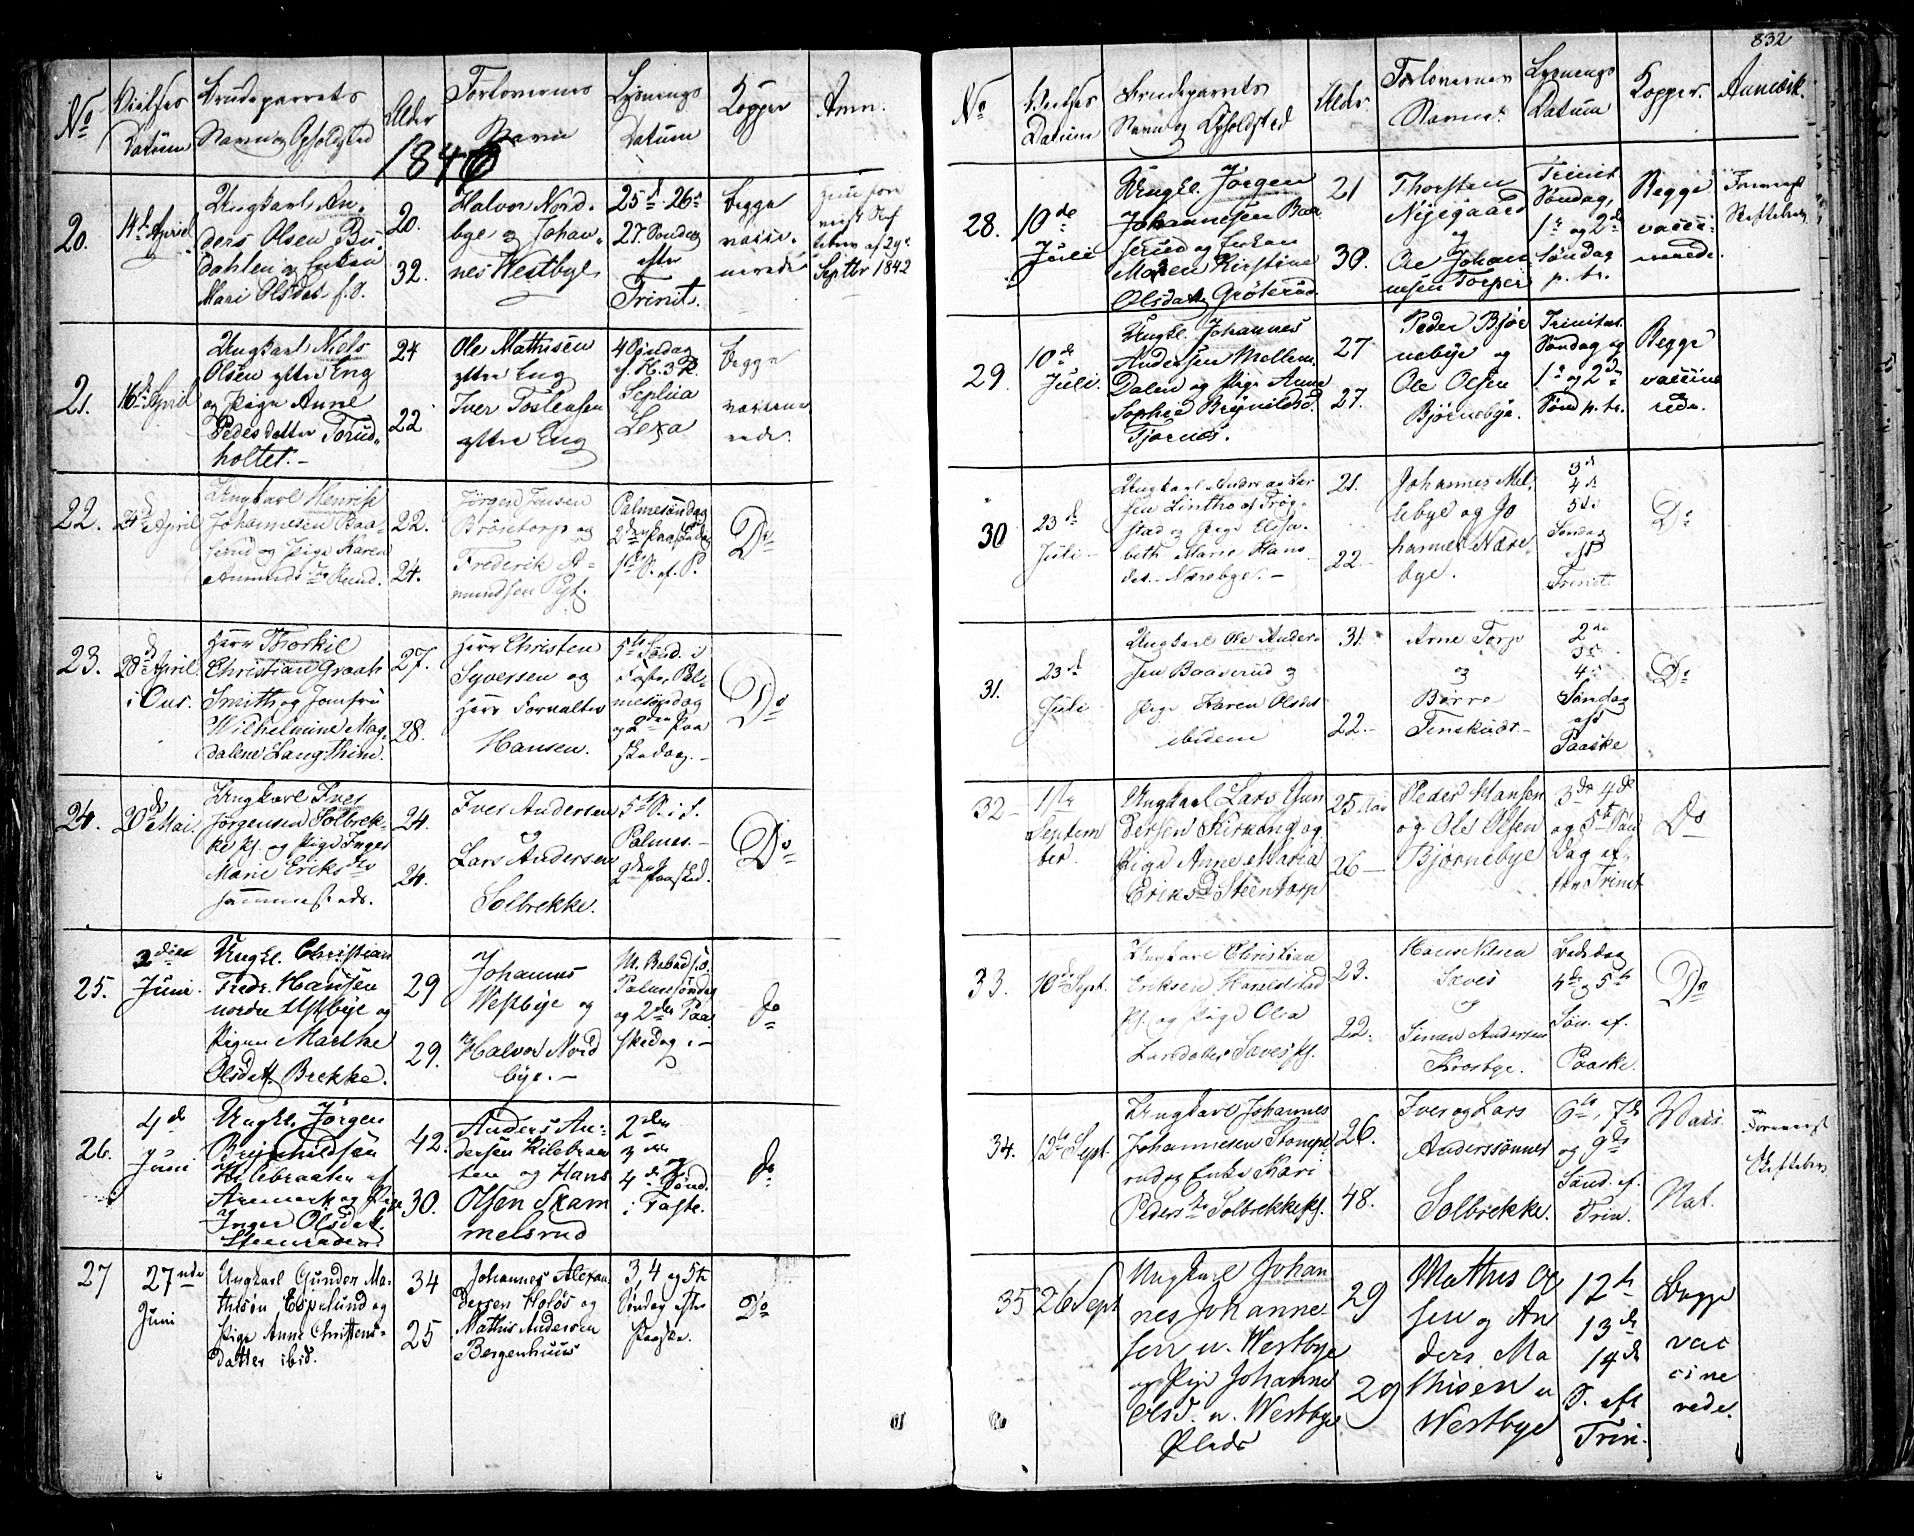 832
No
Vielses
Datum
Brudeparrets
Navn og Opholdsted
Alder
Forlovernes
Navn
Lysnings
Datum
Kopper
Anm.
1846
20.
14de April
Ungkarl An-
ders Olsen Bu-
dahlen og Enken
Mari Olsdat. f. d.
20.
32.
Halvor Nord-
bye og Johan-
nes Westbye
25de 26de
27. Søndag
efter
Trinit.
Begge
vacci-
nerede
af 29de
Septbr 1842
21.
16de April
Ungkarl Niels
Olsen ytre Eng
og Pige Anne
Pedersdatter Torud-
holtet.-
24
22
Ole Mathisen
ytre Eng
Iver Toslensen
ytre Eng
4 Søndag
ef. H. 3 K.
Septua
Sexa
Begge
vaccine
rede.
22.
24de April
Ungkarl Henrik
Johannesen Baa-
serud og Pige Karen
Amunds. Rund.
22.
24.
Jørgen Jensen
Brøstorp og
Frederik A-
mundsen
Palmesøndag
2den Paaskedag
1ste S. ef. P.
Do
23.
28de April
i Hus.
Herr Thorkil
Christian Graah
Smith og Jomfru
Wilhelmine Mag-
dalene Langthim.
27.
28.
Herr Christen
Syversen og
Herr Forvalter
Hansen.
5te Sønd. i
Faste, Pal-
mesøndag
og 2den Paa
skedag.-
Do
24.
20de Mai.
Ungkarl Iver
Jørgensen Solbrek-
ke og Pige Inger
Marie Eriksdr
sammesteds.
24.
24.
Iver Andersen
og
Lars Andersen
Solbrekke.
5te S. i F.
Palmes.-
2den Paasked.
Do
25.
3die
Juni.
Ungk. Christian
Fredr. Hansen
nordre Westbye og
Pigen Marthe
Olsdatt. Brekke.
29
29.
Johannes
Westbye og
Halvor Nord
bye.-
M. Bebud.
Palmesøndag
og 2den Paa
skedag.-
do
26.
4de
Juni
Ungk. Jørgen
Brynhildsen
Kilebraaten af
Aremark og Pige
Inger Olsdat.
Steenraden.
42.
30.
Anders An-
dersen Kilebraa
ten og Hans
Olsen Skam
melsrud
2den
3die
og
4de Sønd.
i Faste.
do
27
27nde
Juni
Ungkarl Gunder Ma-
thisen Espelund og
Pige Anne Christens-
datter ibid.
34
25
Johannes Alexan
dersen Holøs og
Mathis Andersen
Bergenhuus
3, 4 og 5te
Søndag efter
Paaske.
Do
No
Vielses
Datum
Brudeparrets
Navn og Opholdsted
Alder.
Forlovernes
Navne.
Lysnings
Datum
Kopper.
Anmærk.
28.
10de
Juli
Ungk. Jørgen
Johannesen Baa
serud og Enken
Maren Kirstine
Olsdatt. Grøterud
21
30.
Thorsten
Nygaard
og
Ole Johan
nesen Torper
Trinit
Søndag,
1ste og 2de
Søndag
p. tr.
Begge
vacci-
nerede.
Foreviist
Skiftebrev
29.
10de
Juli.
Ungk. Johannes
Andersen Mellem
Dalen og Pige Anne
Sophie Brynildsd.
Tjernes.
27
27.
Peder Bjør
nebye og
Ole Olsen
Bjørnebye.
Trinitat.
Søndag og
1ste og 2den
Sønd p. tr.
Begge
vaccine
rede.
30
23de
Juli-
Ungkarl Andreas Lar
sen Lintho af Trøg-
stad og Pige Elisa-
beth Marie Hans
dat. Nærebye.-
21.
22-
Johannes Mel-
lebye og Jo
hannes Nære-
bye.
3de
4de
5te
Søndag
eft
Trinit
Do
31.
23de
Juli
Ungkarl Ole Ander-
sen Baaserud og
Pige Karen Olsdt
ibidem
31.
22.-
Arne Torp
og
Børre
Tenskudt-
2den
3de
4de
Søndag
eft
Paaske
Do
32-
1ste
Septem
ber.
Ungkarl Lars Gun
dersen Kirkeng og
Pige Anne Maria
Eriksd. Steentorp
25 Aar
26-
Peder Hansen
og Ole Olsen
Bjørnebye
3de 4de
og 5te Søn
dag ef-
ter Trinit
Do
33.
10de Sept.
Ungkarl Christian
Eriksen Haraldstad
og Pige Olia
Larsdatter Saves
23.
22.
Hans Nilsen
Saves
og
Simen Andersen
Krosbye.
Bededag
4de og 5te
Søn. ef.
Paaske.
Do
34.
12te Sept.
Ungkarl Johannes
Johannesen Stompe-
rud og Enke Kari
Peders Solbrekke
26.
48.
Iver og Lars
Anderssønner
Solbrekke.
6te, 7de
og 9de
Sønd. ef.
Trin.
Vacc.
Nat.
Foreviist
Skiftebrev
35
26 Sept
Ungkarl Johan
nes Johanne-
sen n. Westbye
og Pige Johanne
Olsd. n. Westbye
Plads
29
29
Mathis Ol
sen og An
ders Ma
thisen n
Westbye
12te
13de
14de
S. eft
Trin.
Begge
vac
cine
rede.